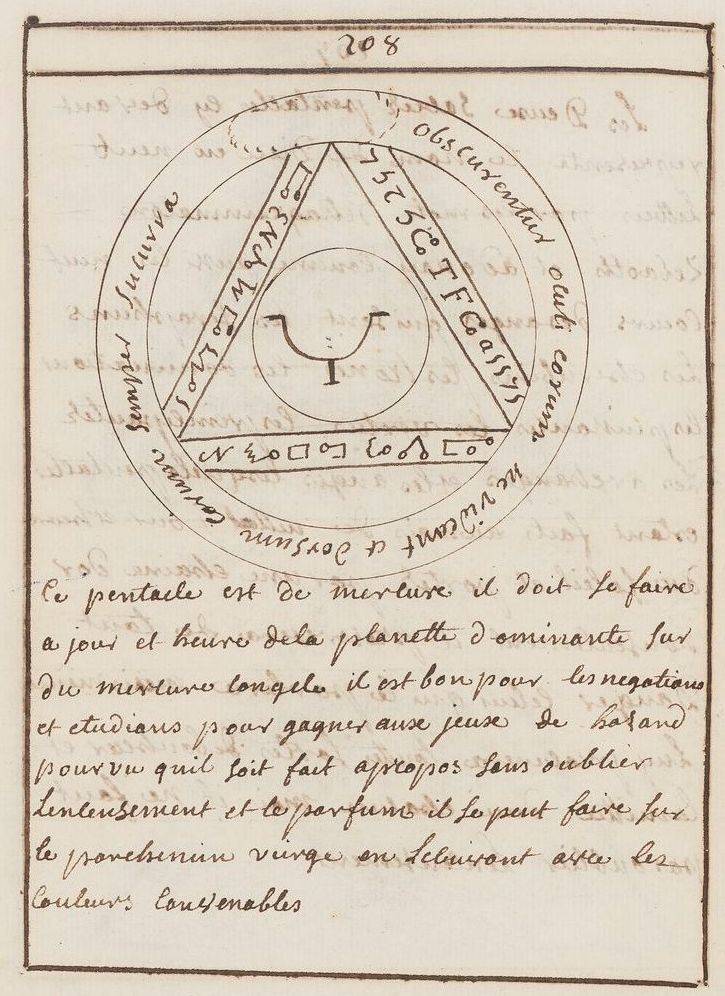 208
obscurentur oculi eorum ne videant et dorsum eorum semper incurva
Ce pentacle est de mercure il doit se faire
a jour et heure dela planette dominante sur
du mercure congele il est bon pour les negotians
et etudians pour gagner aux jeux de hasard
pourvu quil soit fait apropos sans oublier
Lencensement et le parfum il se peut faire sur
le parchemin vierge en
couleurs convenables